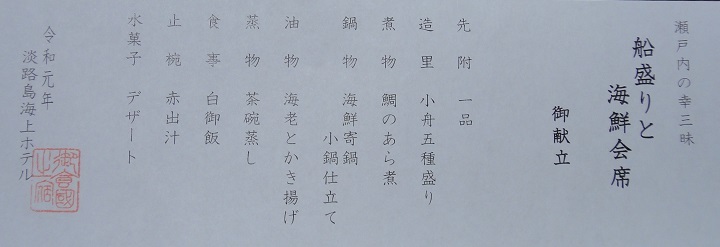 瀬戸内の幸三昧
船盛りと
海鮮会席
御献立
先附 一品
造里 小舟五種盛り
煮物 鯛のあら煮
鍋物 海鮮寄鍋
小鍋仕立て
油物 海老とかき揚げ
蒸物 茶碗蒸し
食事 白御飯
止椀 赤出汁
水菓子 デザート
令和元年
淡路島海上ホテル
御食國
之宿